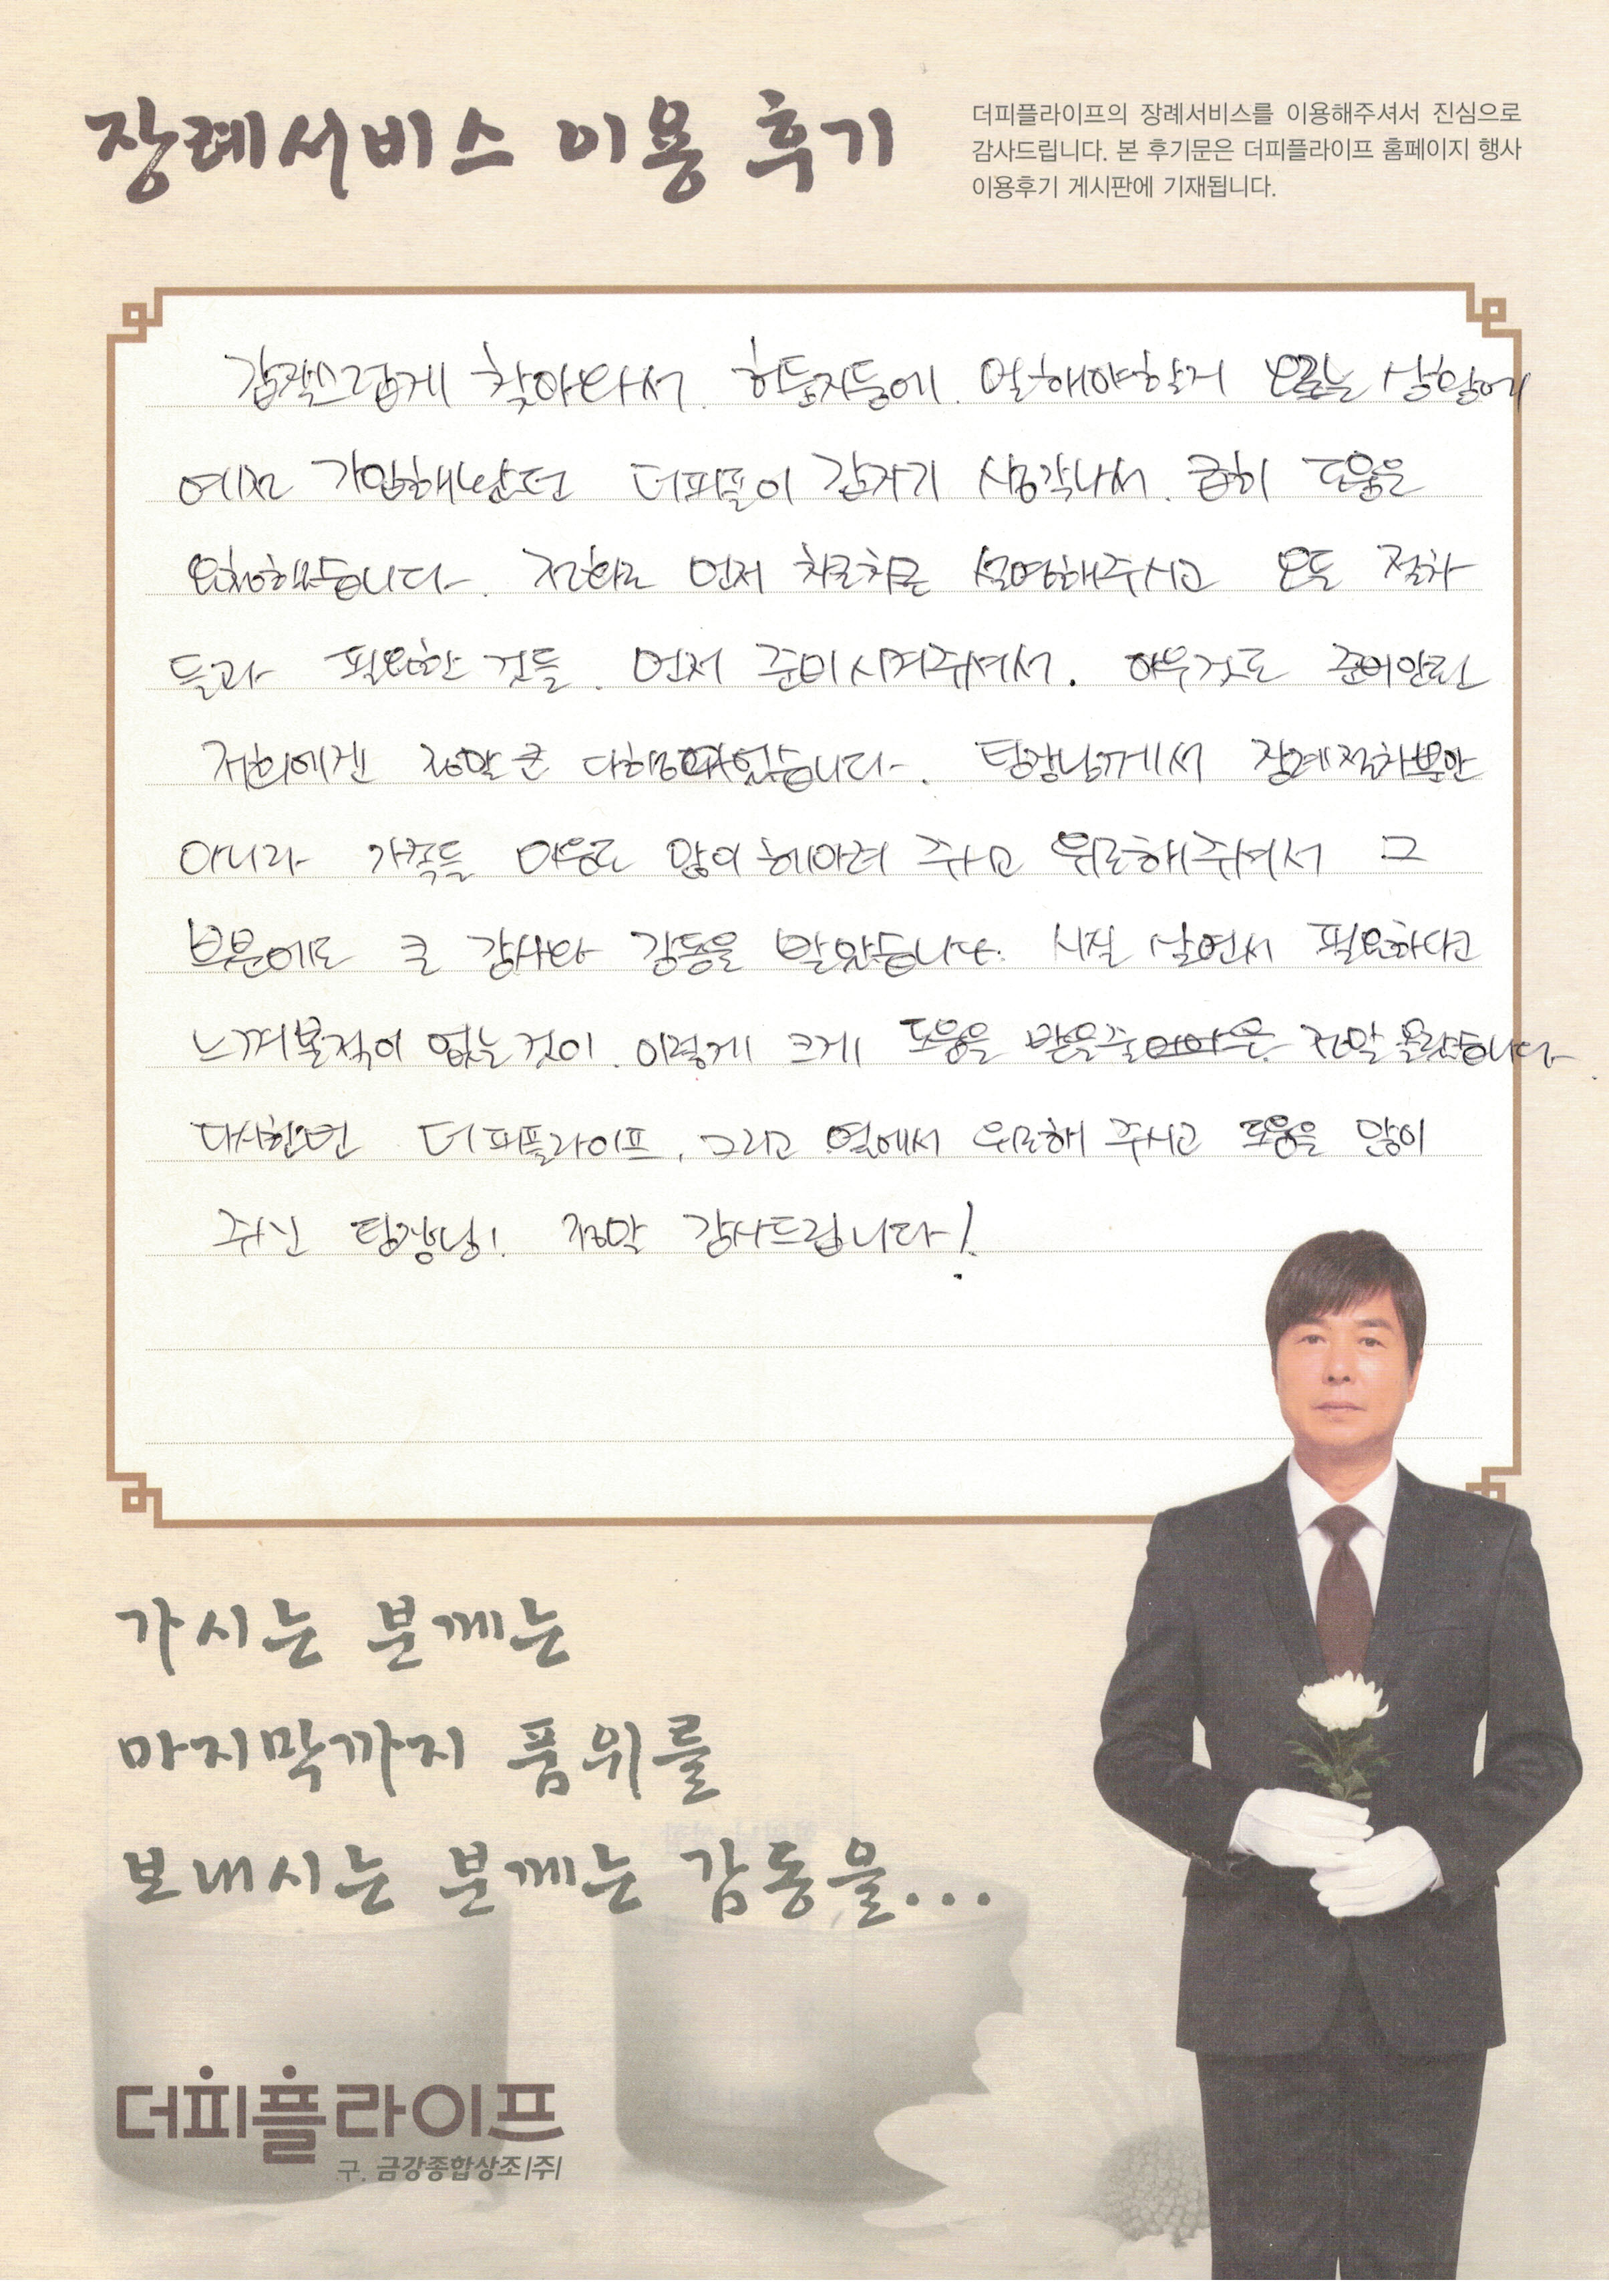 장례서비스 이용 후기
더피플라이프의 장례서비스를 이용해주셔서 진심으로
감사드립니다. 본 후기문은 더피플라이프 홈페이지 행사
이용후기 게시판에 기재됩니다.
갑작스럽게 찾아와서. 허둥지둥에. 멀해야할지 모르는 상황에
예전 가입해놨던 더피플이 갑자기 생각나서. 급히 도움을
요청했습니다. 전화로 먼저 차근차근 설명해주시고 모든 절차
들과 필요한 것들. 먼저 준비시켜주셔서. 아무것도 준비안된
저희에겐 정말 큰 다행이었습니다. 팀장님께서 장례절차뿐만
아니라 가족들 마음도 많이 헤아려 주시고 위로해주셔서 그
부분에도 큰 감사와 감동을 받았습니다. 사실 살면서 필요하다고
느껴본적이 없는것이. 이렇게 크게 도움을 받을줄은 정말 몰랐습니다
다시한번 더피플라이프. 그리고 옆에서 위로해 주시고 도움을 많이
주신 팀장님! 정말 감사드립니다!
가시는 분께는
마지막까지 품위를
보내시는 분께는 감동을...
더피플라이프
구. 금강종합상조|주|